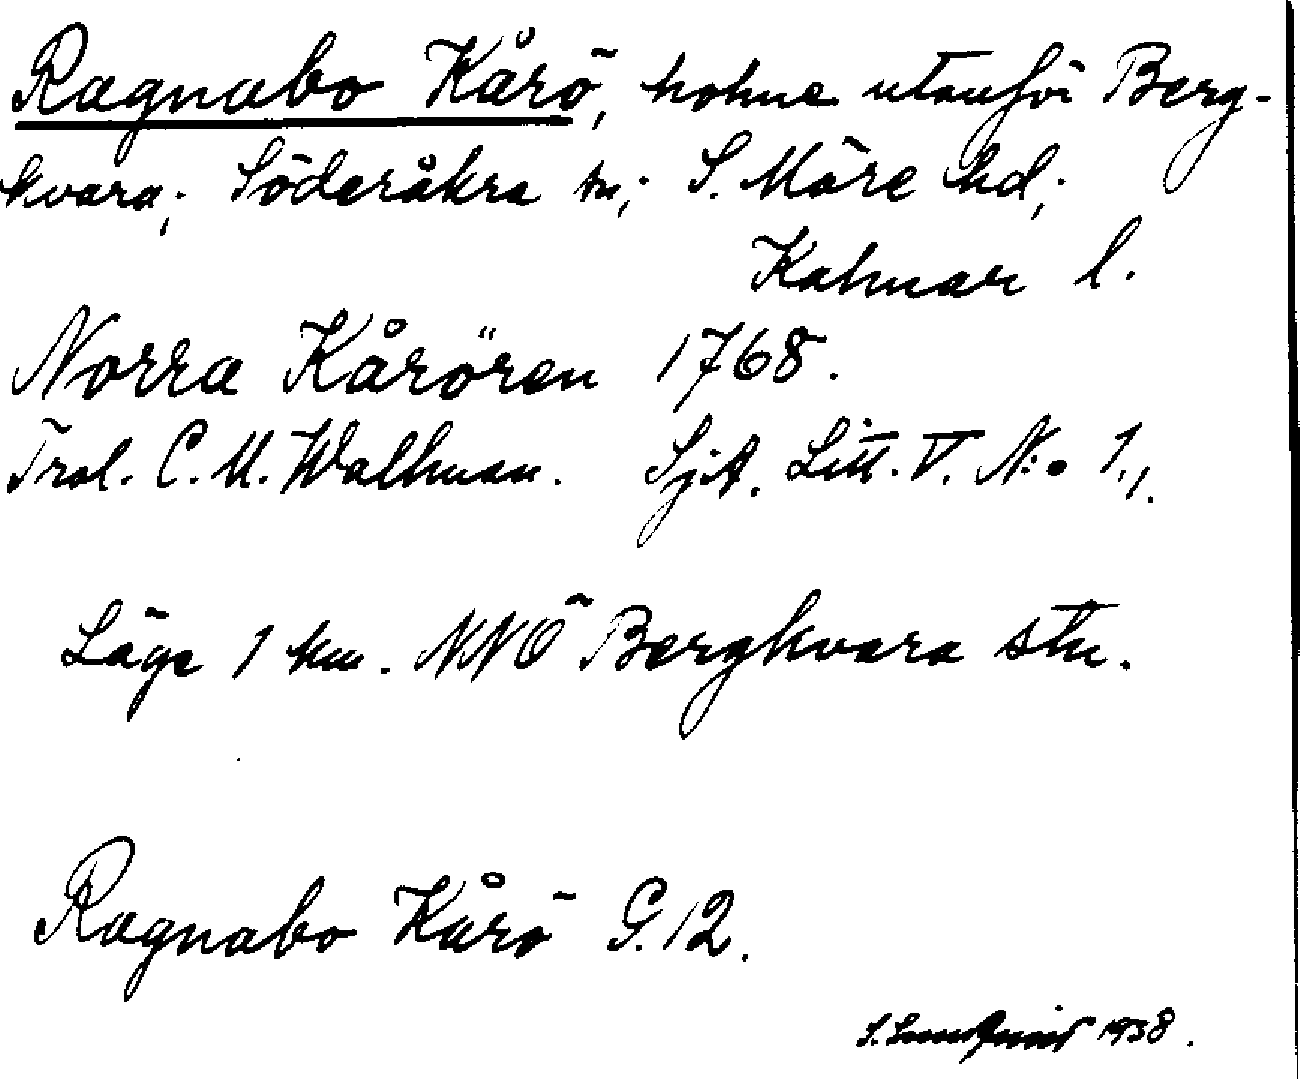 Ragnabo Kårö, holme utanför Berg-
kvara; Söderåkra sn; S. Möre hd;
Kalmar l.
Norra Kårören 1768.
Trol. C. M. Wallman. SjA. Litt. V. N:o 1.1.
Läge 1 km. NNÖ Bergkvara stn.
Ragnabo Kårö G.12.
S. Lundqvist 1938.